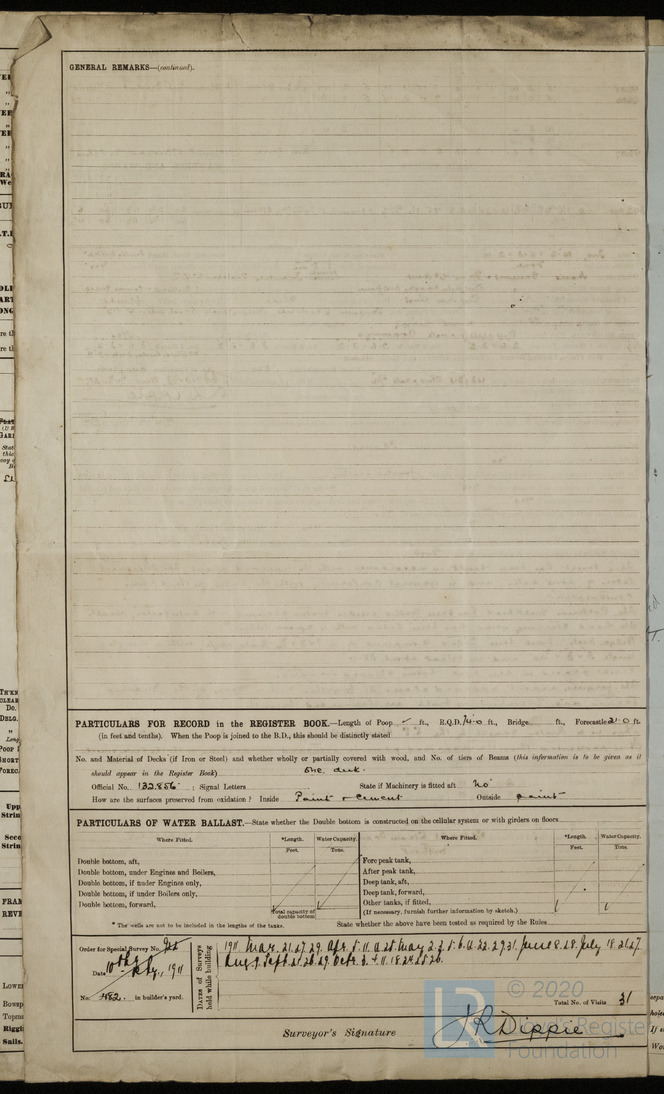 GENERAL REMARKS—(continued).
PARTICULARS FOR RECORD in the REGISTER BOOK.—Length of Poop ft., R.Q.D. 74.0 ft., Bridge ft., Forecastle 21.0 ft.
(in feet and tenths). When the Poop is joined to the B.D., this should be distinctly stated
No. and Material of Decks (if Iron or Steel) and whether wholly or partially covered with wood, and No. of tiers of Beams (this information is to be given as it
should appear in the Register Book) One deck.
Official No. 132.856 ; Signal Letters State if Machinery is fitted aft No
How are the surfaces preserved from oxidation? Inside Paint & cement Outside paint
PARTICULARS OF WATER BALLAST.—State whether the Double bottom is constructed on the cellular system or with girders on floors
Where Fitted. *Length. Water Capacity. Where Fitted. *Length. Water Capacity.
Feet. Tons. Feet. Tons.
Double bottom, aft, Fore peak tank,
Double bottom, under Engines and Boilers, After peak tank,
Double bottom, if under Engines only, Deep tank, aft,
Double bottom, if under Boilers only, Deep tank, forward,
Double bottom, forward, Other tanks, if fitted,
Total capacity of double bottom (If necessary, furnish further information by sketch.)
* The wells are not to be included in the lengths of the tanks. State whether the above have been tested as required by the Rules
Order for Special Survey No.
Date 10th 1911
No. 482. in builder's yard.
Dates of Surveys held while building
1911. Mar. 21.27.29. Apr. 5.11. May 2.3.5. 22.29.31. June 8.28. July 18.26.27
Aug. 9. Sept. 21.26.29. Octr. 3.
Total No. of Visits 31
Surveyor's Signature J R Dippie
© 2020
Lloyd's Register
Foundation